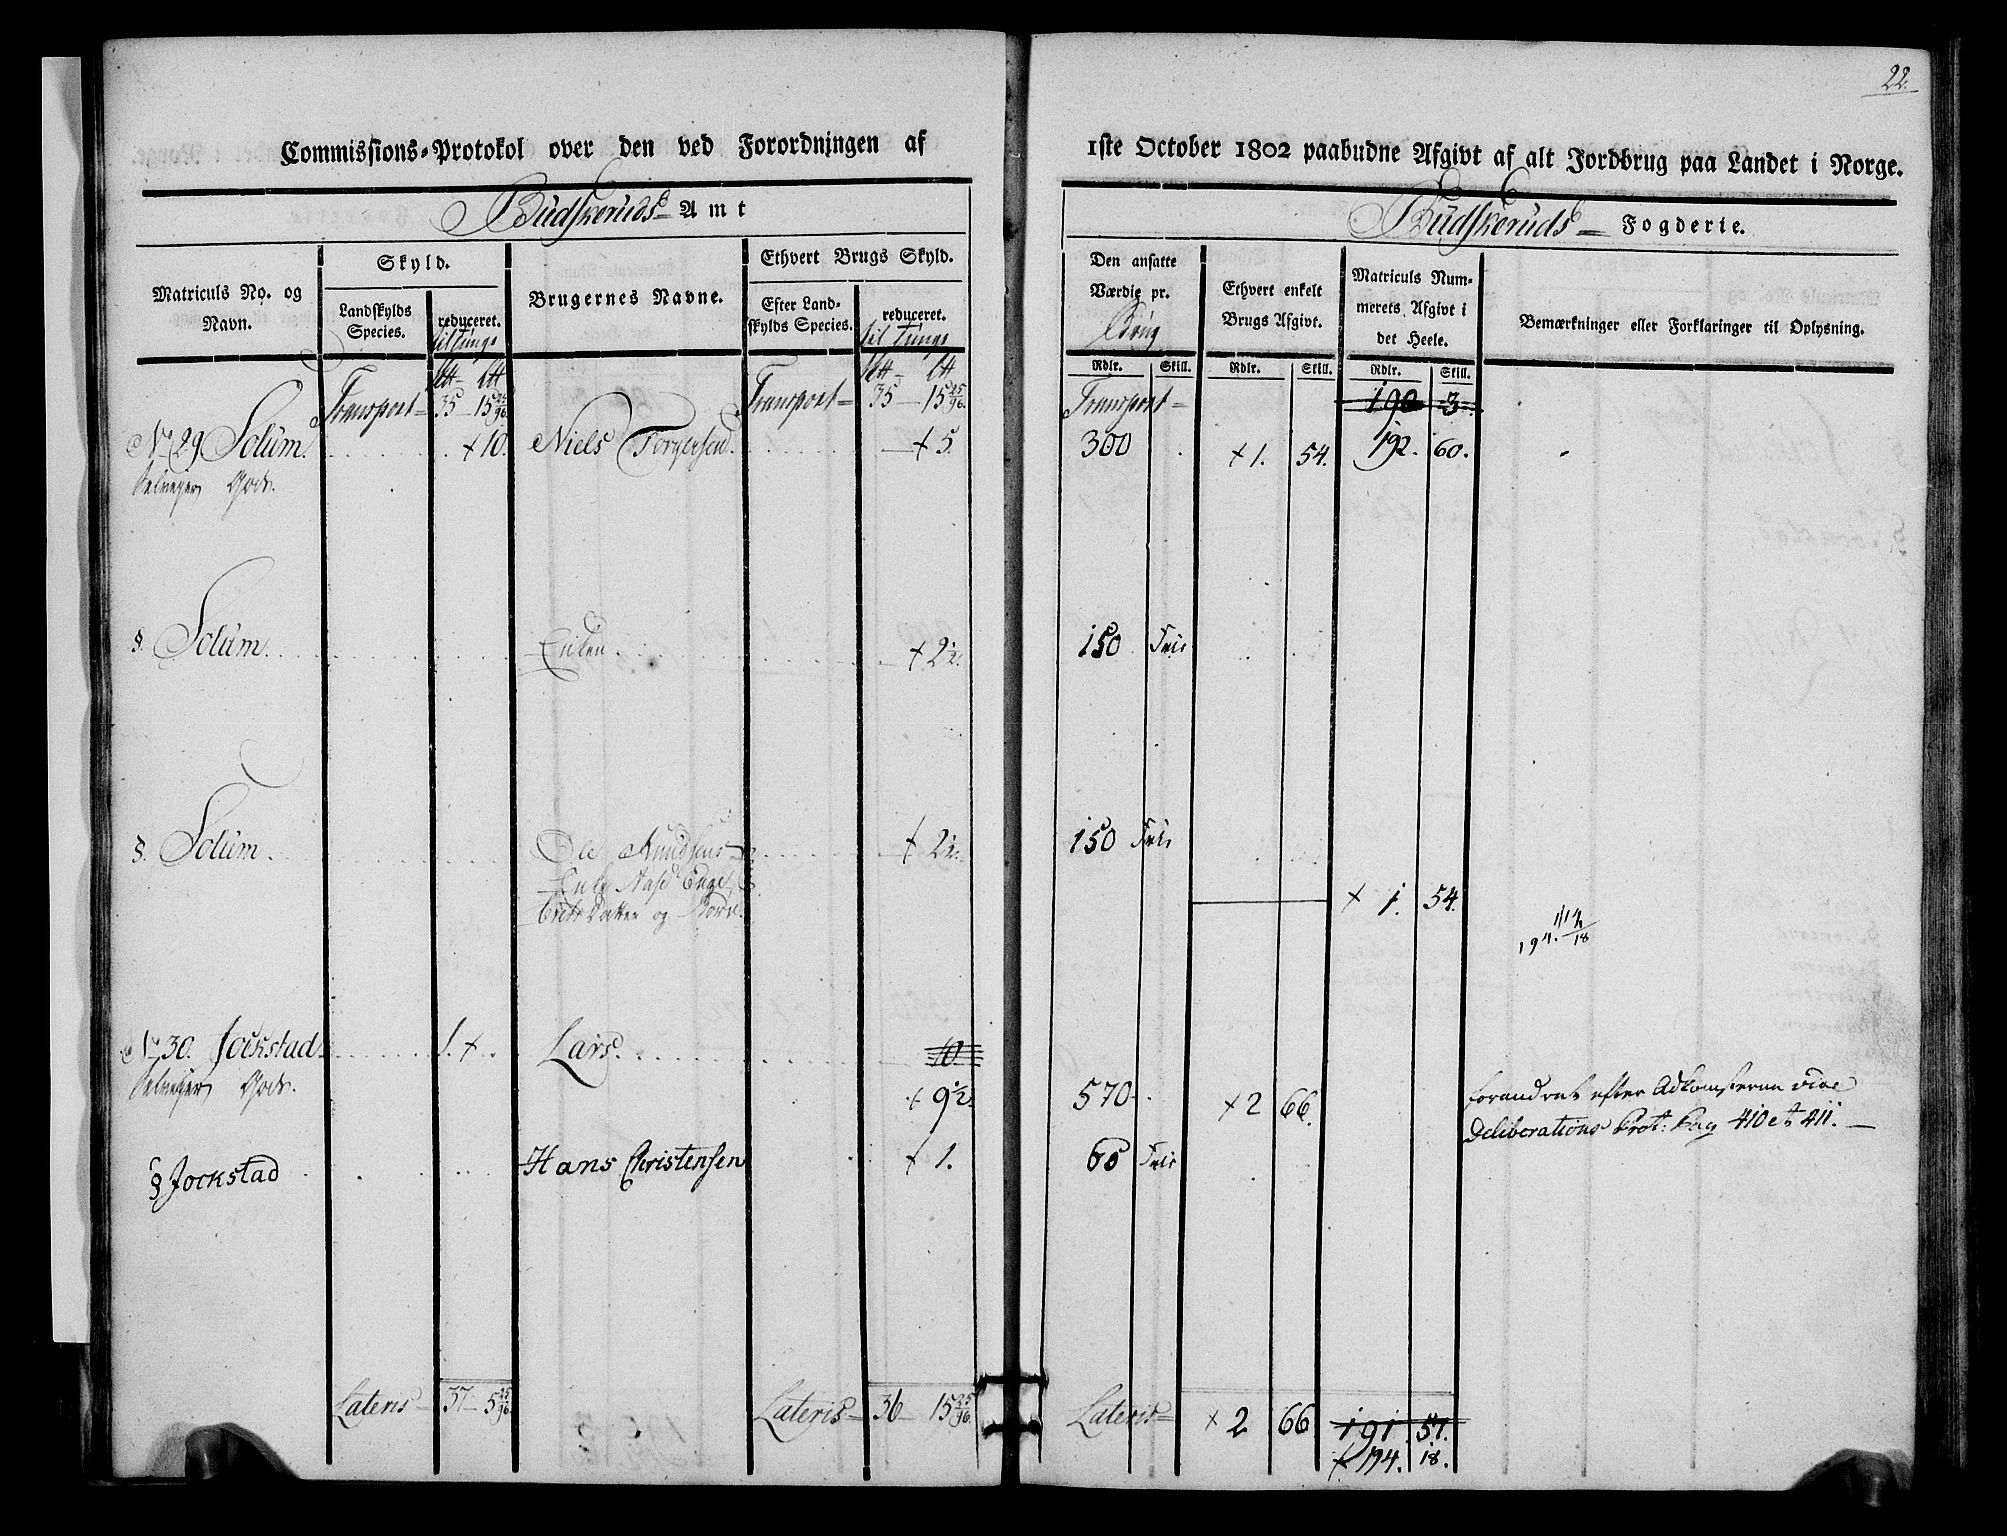 22.
Commissions-Protokol over den ved Forordningen af 1ste October 1802 paabudne Afgivt af alt Jordbrug paa Landet i Norge.
Budskeruds Amt
Budskeruds Fogderie.
Matriculs No. og Navn.
Skyld.
Landskylds Species.
reduceret.
til Tunge
Brugernes Navne.
Ethvert Brugs Skyld.
Efter Landskylds Species.
reduceret.
til Tunge
Den ansatte Værdie pr.
Brug
Rdlr. Skill.
Ethvert enkelt Brugs Afgivt.
Rdlr. Skill.
Matriculs Nummerets Afgivt i det Heele.
Rdlr. Skill.
Bemærkninger eller Forklaringer til Oplysning.
Transport 35 15 25/96 Transport 35 15 25/96 Transport 190 3
No 29 Solum + 10. Niels Torgersen + 5. 300 + 1. 54. 192. 60.
Selveyer Gods.
§. Solum Enken + 2 1/2. 150 Frie
§. Solum Ole Knudsens + 2 1/2. 150 Frie
og Børn
+ 1. 54.
194. 18
No 30. Jockstad 1. + Lars 10
Selveyer Gods. + 9 1/2 570 + 2 66
forandret efter Adkomsterne vide
Deliberations Prot: Pag 410 et 411.
§ Jockstad Hans Christensen + 1. 60 Frie
Lateris 37 5 25/96 Lateris 36 15 25/96 Lateris + 2 66 191 57.
+ 194. 18.